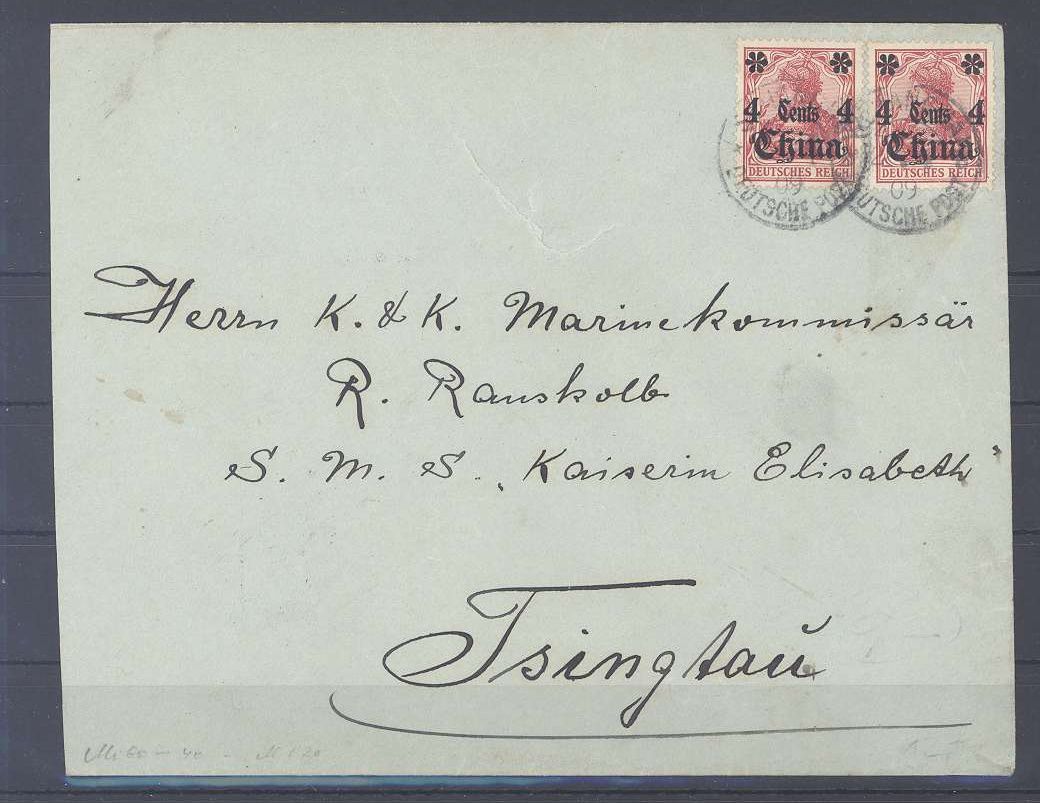 4 Cents 4
China
DEUTSCHES REICH
4 Cents 4
China
DEUTSCHES REICH
09
DEUTSCHE POST
09
DEUTSCHE POST
Herrn K. & K. Marinekommissär
R. Rauskolb
S. M. S. „Kaiserin Elisabeth"
Tsingtau